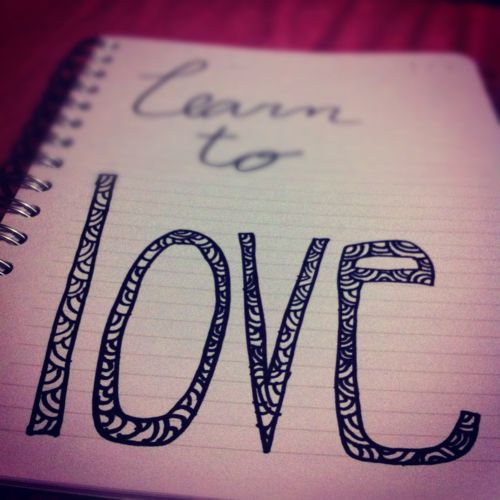 learn
to
love